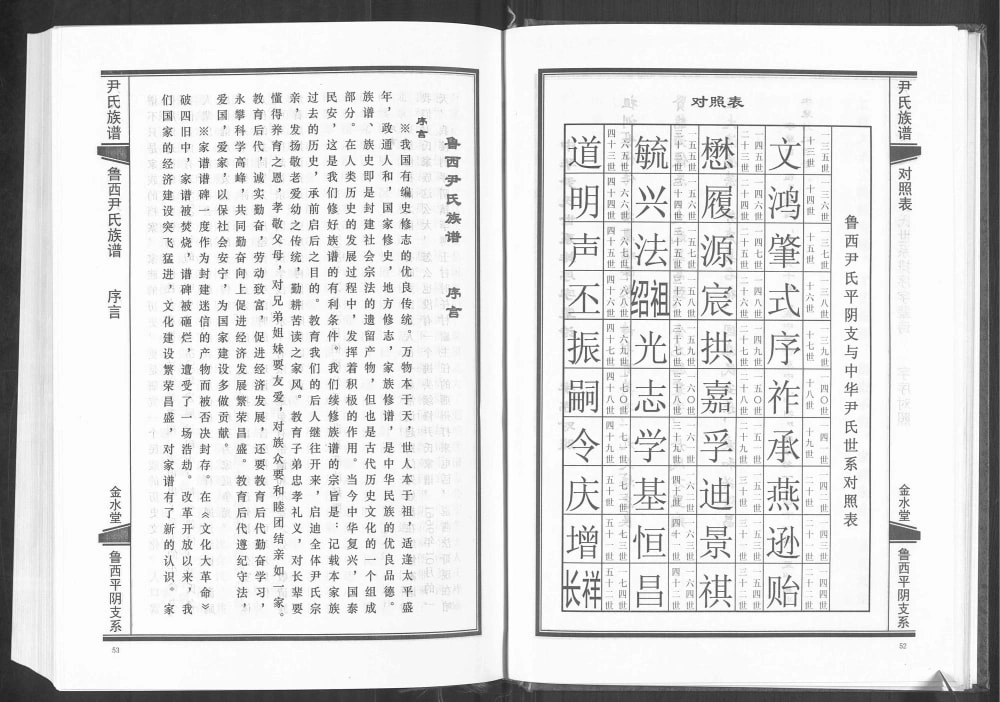 尹氏族谱
对照表
金水堂
鲁西平阴支系
52
对照表
鲁西尹氏平阴支与中华尹氏世系对照表
一三五世 一三六世 一三七世 一三八世 一三九世 一四〇世 一四一世 一四二世 一四三世 一四四世
十三世 十四世 十五世 十六世 十七世 十八世 十九世 二十世 二十一世 二十二世
文 鸿 肇 式 序 祚 承 燕 逊 贻
一四五世 一四六世 一四七世 一四八世 一四九世 一五〇世 一五一世 一五二世 一五三世 一五四世
二十三世 二十四世 二十五世 二十六世 二十七世 二十八世 二十九世 三十世 三十一世 三十二世
懋 履 源 宸 拱 嘉 孚 迪 景 祺
一五五世 一五六世 一五七世 一五八世 一五九世 一六〇世 一六一世 一六二世 一六三世 一六四世
三十三世 三十四世 三十五世 三十六世 三十七世 三十八世 三十九世 四十世 四十一世 四十二世
毓 兴 法 绍祖 光 志 学 基 恒 昌
一六五世 一六六世 一六七世 一六八世 一六九世 一七〇世 一七一世 一七二世 一七三世 一七四世
四十三世 四十四世 四十五世 四十六世 四十七世 四十八世 四十九世 五十世 五十一世 五十二世
道 明 声 丕 振 嗣 令 庆 增 长祥
鲁西尹氏族谱 序言
序言
※我国有编史修志的优良传统。万物本于天，世人本于祖，适逢太平盛
年，政通人和，国家修史，地方修志，家族修谱，是中华民族的优良品德。
族谱、族史即是封建社会宗法的遗留产物，但也是古代历史文化的一个组成
部分。在人类历史的发展过程中，发挥着积极的作用。当今中华复兴，国泰
民安，这是我们修好族谱的有利条件。我们续修族谱的宗旨是：记载本家族
过去的历史，承前启后之目的。教育我们的后人继往开来，启迪全体尹氏宗
亲，发扬敬老爱幼之传统，勤耕苦读之家风。教育子弟忠孝礼义，对长辈要
懂得养育之恩，孝敬父母，对兄弟姐妹要友爱，对族众要和睦团结亲如一家。
教育后代，诚实勤奋，劳动致富，促进经济发展，还要教育后代勤奋学习，
永攀科学高峰，共同勤奋向上促进经济发展繁荣昌盛。教育后代遵纪守法，
爱国，爱家，以保社会安宁，为国家建设多做贡献。
※家谱谱碑一度作为封建迷信的产物而被否决封存。在《文化大革命》
破四旧中，家谱被焚烧，谱碑被砸烂，遭受了一场浩劫。改革开放以来，我
们国家的经济建设突飞猛进，文化建设繁荣昌盛，对家谱有了新的认识。家
尹氏族谱
鲁西尹氏族谱 序言
金水堂
鲁西平阴支系
53